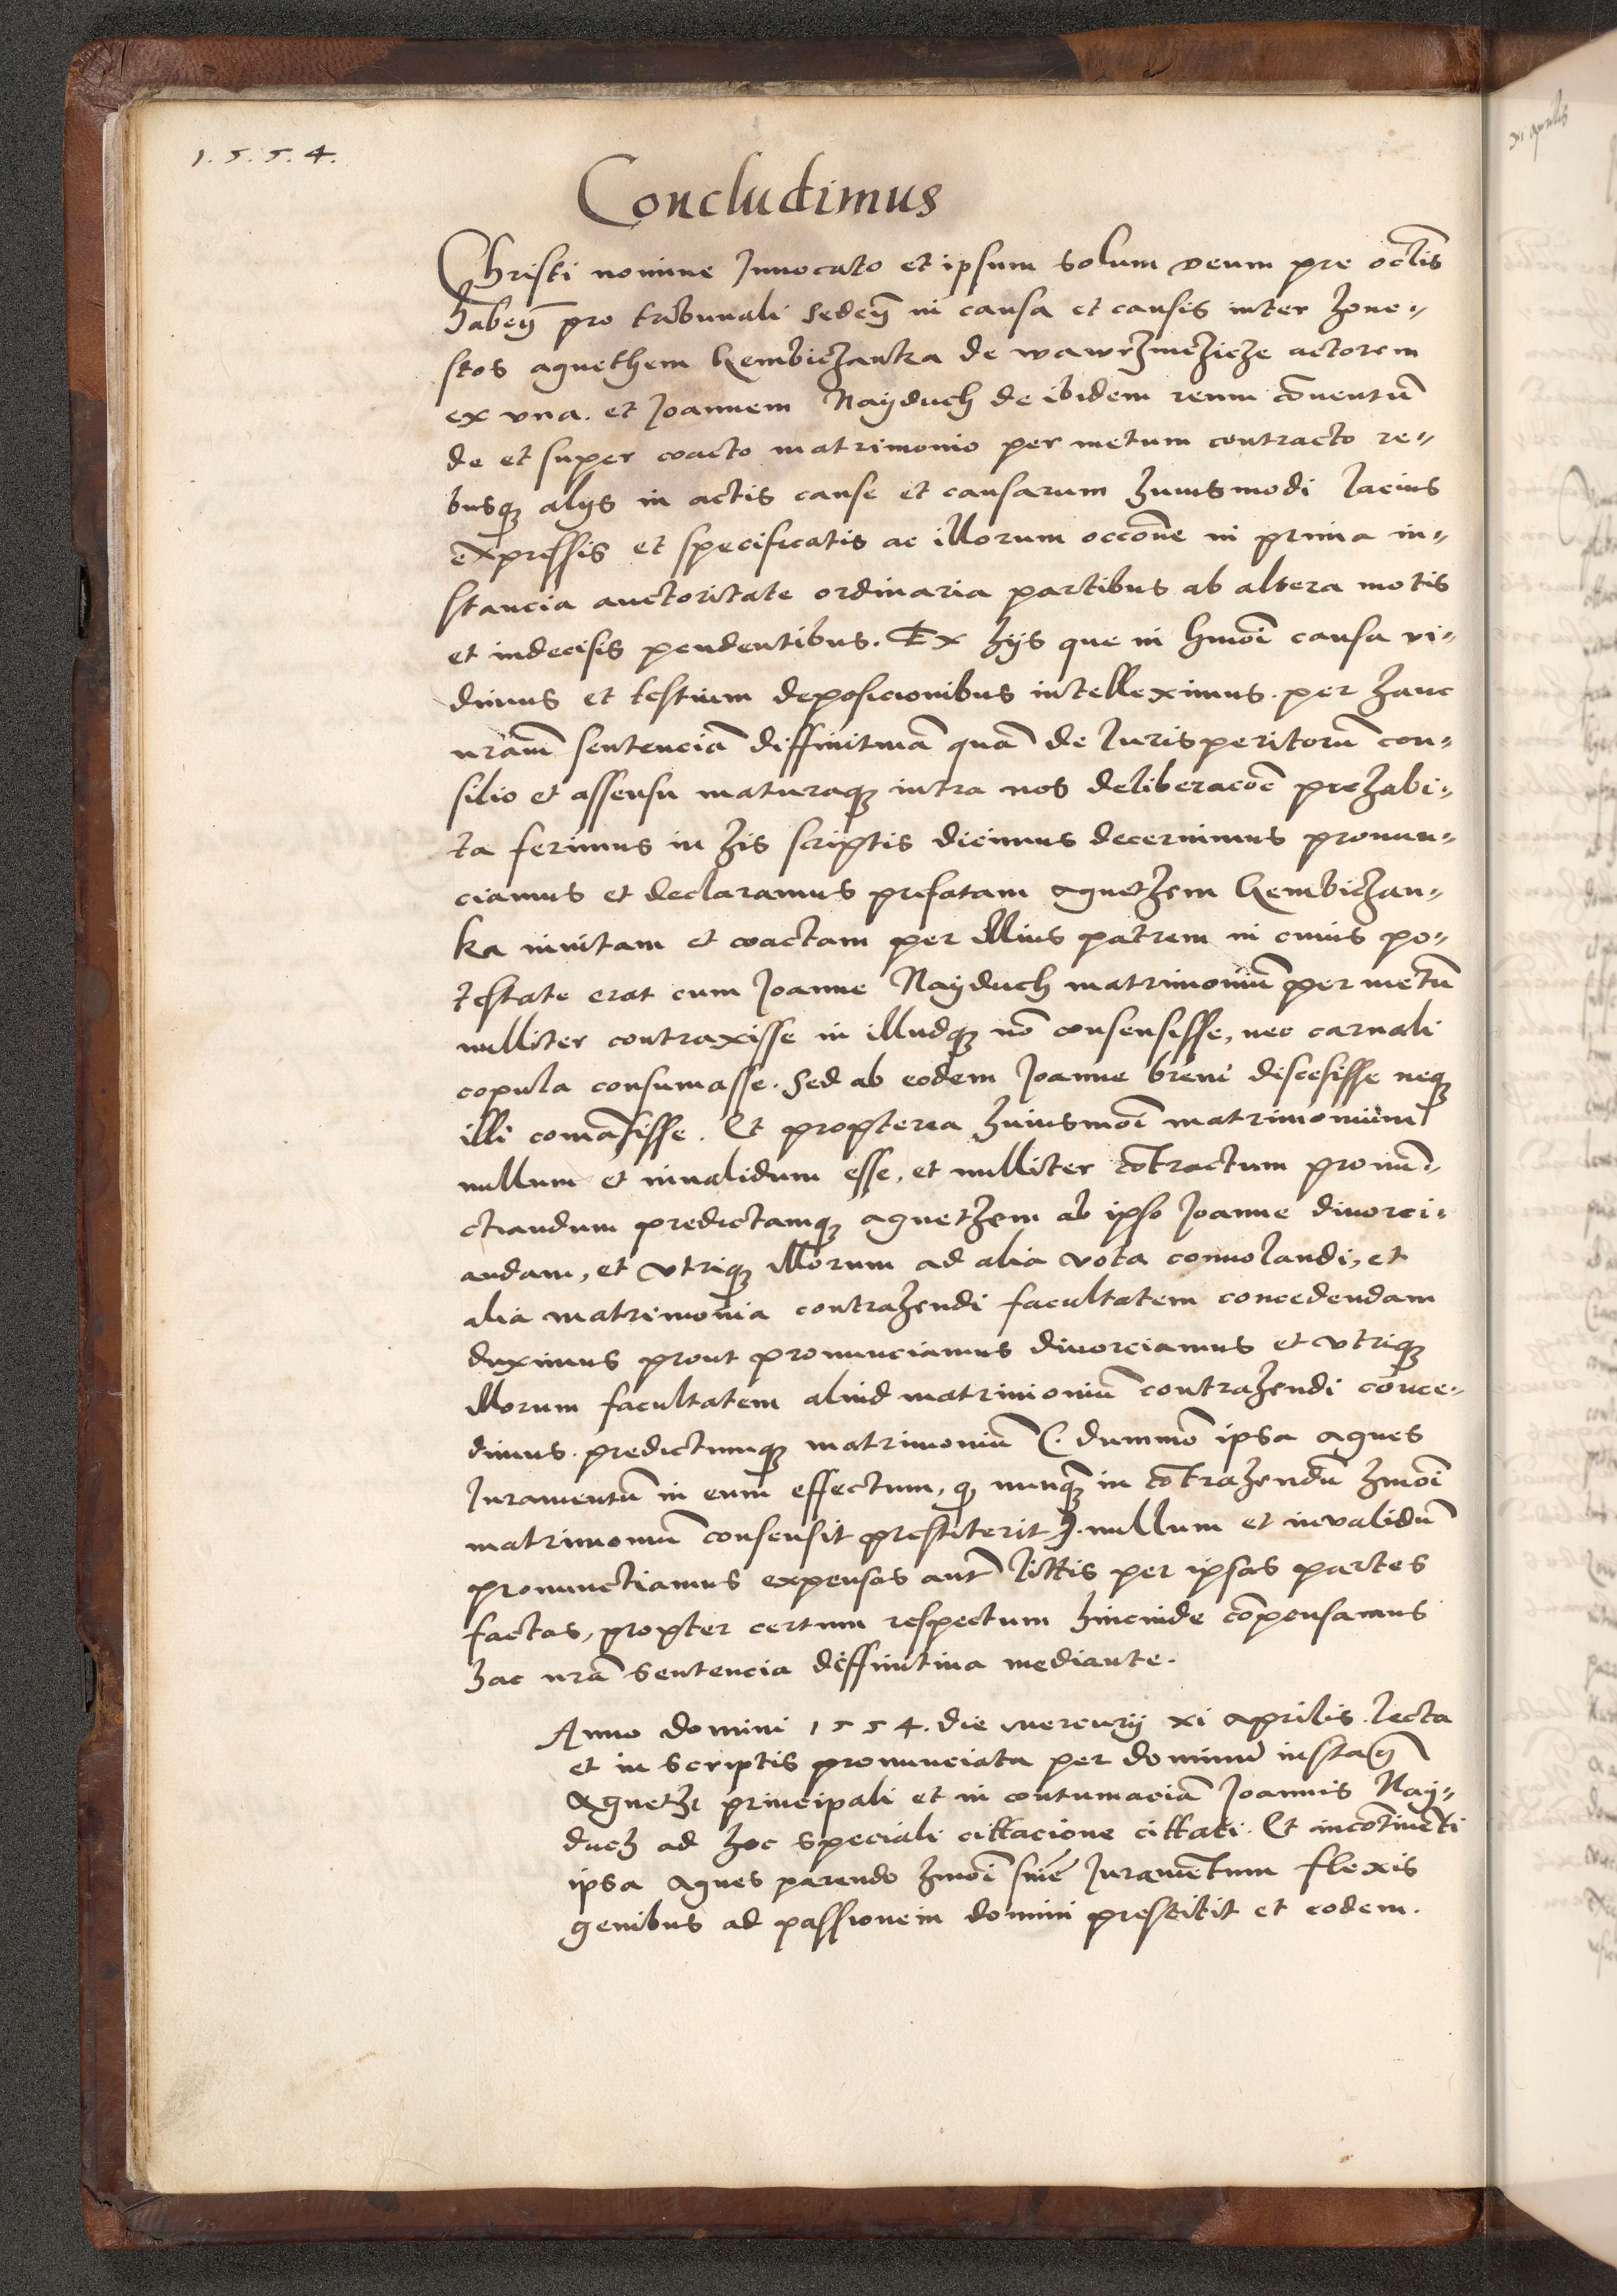 1.5.5.4.
Concludimus
Christi nomine Invocato et ipsum solum deum pre oclis
haben̄ pro tribunali seden̄ in causa et causis inter hone-
stos agnethem Rembiczanka de wawrzinczicze actorem
ex vna. et Joannem Nayduch de ibidem reum cōuentū
de et super coacto matrimonio per metum contracto re-
busq̄ alijs in actis cause et causarum huiusmodi lacius
expressis et specificatis ac illorum occōne in prima in-
stancia auctoritate ordinaria partibus ab altera motis
et indecisis pendentibus. Ex hijs que in hmōi causa vi-
dimus et testium deposicionibus intelleximus. per hanc
nrām sentenciā diffinitiuā quā de Iurisperitorū con-
silio et assensu maturaq̄ intra nos deliberacōe prehabi-
ta ferimus in his scriptis dicimus decernimus pronun-
ciamus et declaramus prefatam agnethem Rembiczan-
ka inuitam et coactam per illius patrem in cuius po-
testate erat cum Joanne Nayduch matrimoniū per metū
nulliter contraxisse in illudq̄ nō consensisse, nec carnali
copula consumasse. Sed ab eodem Joanne breui discesisse neq̄
illi comāsisse. Et propterea huiusmōi matrimonium
nullum et inualidum esse, et nulliter cōtractum pronū-
ctiandum predictamq̄ agnethem ab ipso Joanne diuorci-
andam, et vtriq̄ illorum ad alia vota conuolandi, et
alia matrimonia contrahendi facultatem concedendam
duximus prout pronunciamus diuorciamus et vtriq̄
illorum facultatem aliud matrimoniū contrahendi conce-
dimus. predictumq̄ matrimoniū (. dummō ipsa agnes
Iuramentū in eum effectum, q̄ nunq̄ in cōtrahendū hmōi
matrimoniū consensit prestiterit ). nullum et invalidū
pronunctiamus expensas aut̄ littis per ipsas partes
factas, propter certum respectum hincinde cōpensamus
hac nrā sentencia diffinitiua mediante.
Anno domini 1554. die mercurij xi aprilis. lecta
et in scriptis pronunciata per dominū instan̄
Agnethe principali et in contumaciā Joannis Nay-
duch ad hoc speciali cittacione cittati. Et incōtinēti
ipsa Agnes parendo hmōi sn̄ie Iuramentum flexis
genibus ad passionem domini prestitit et eodem.
xi aprilis